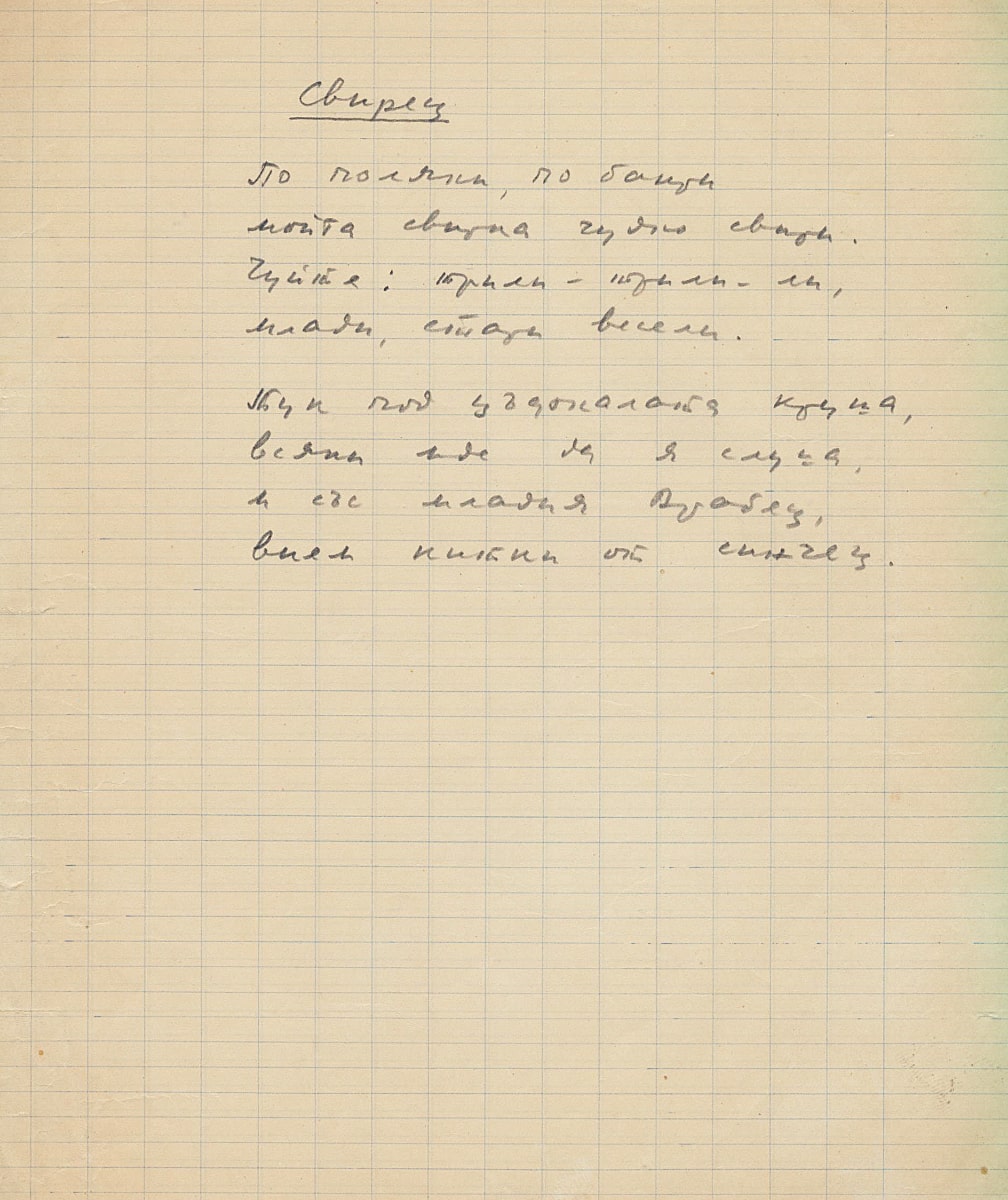 Свирец
По поляни, по баири
мойта свирка чудно свири.
Чуйте: трили - трили - ли,
млади, стари весели.
Тук под цъфналата круша,
всяки иде да я слуша,
и със младия Врабец,
вием китки от синчец.